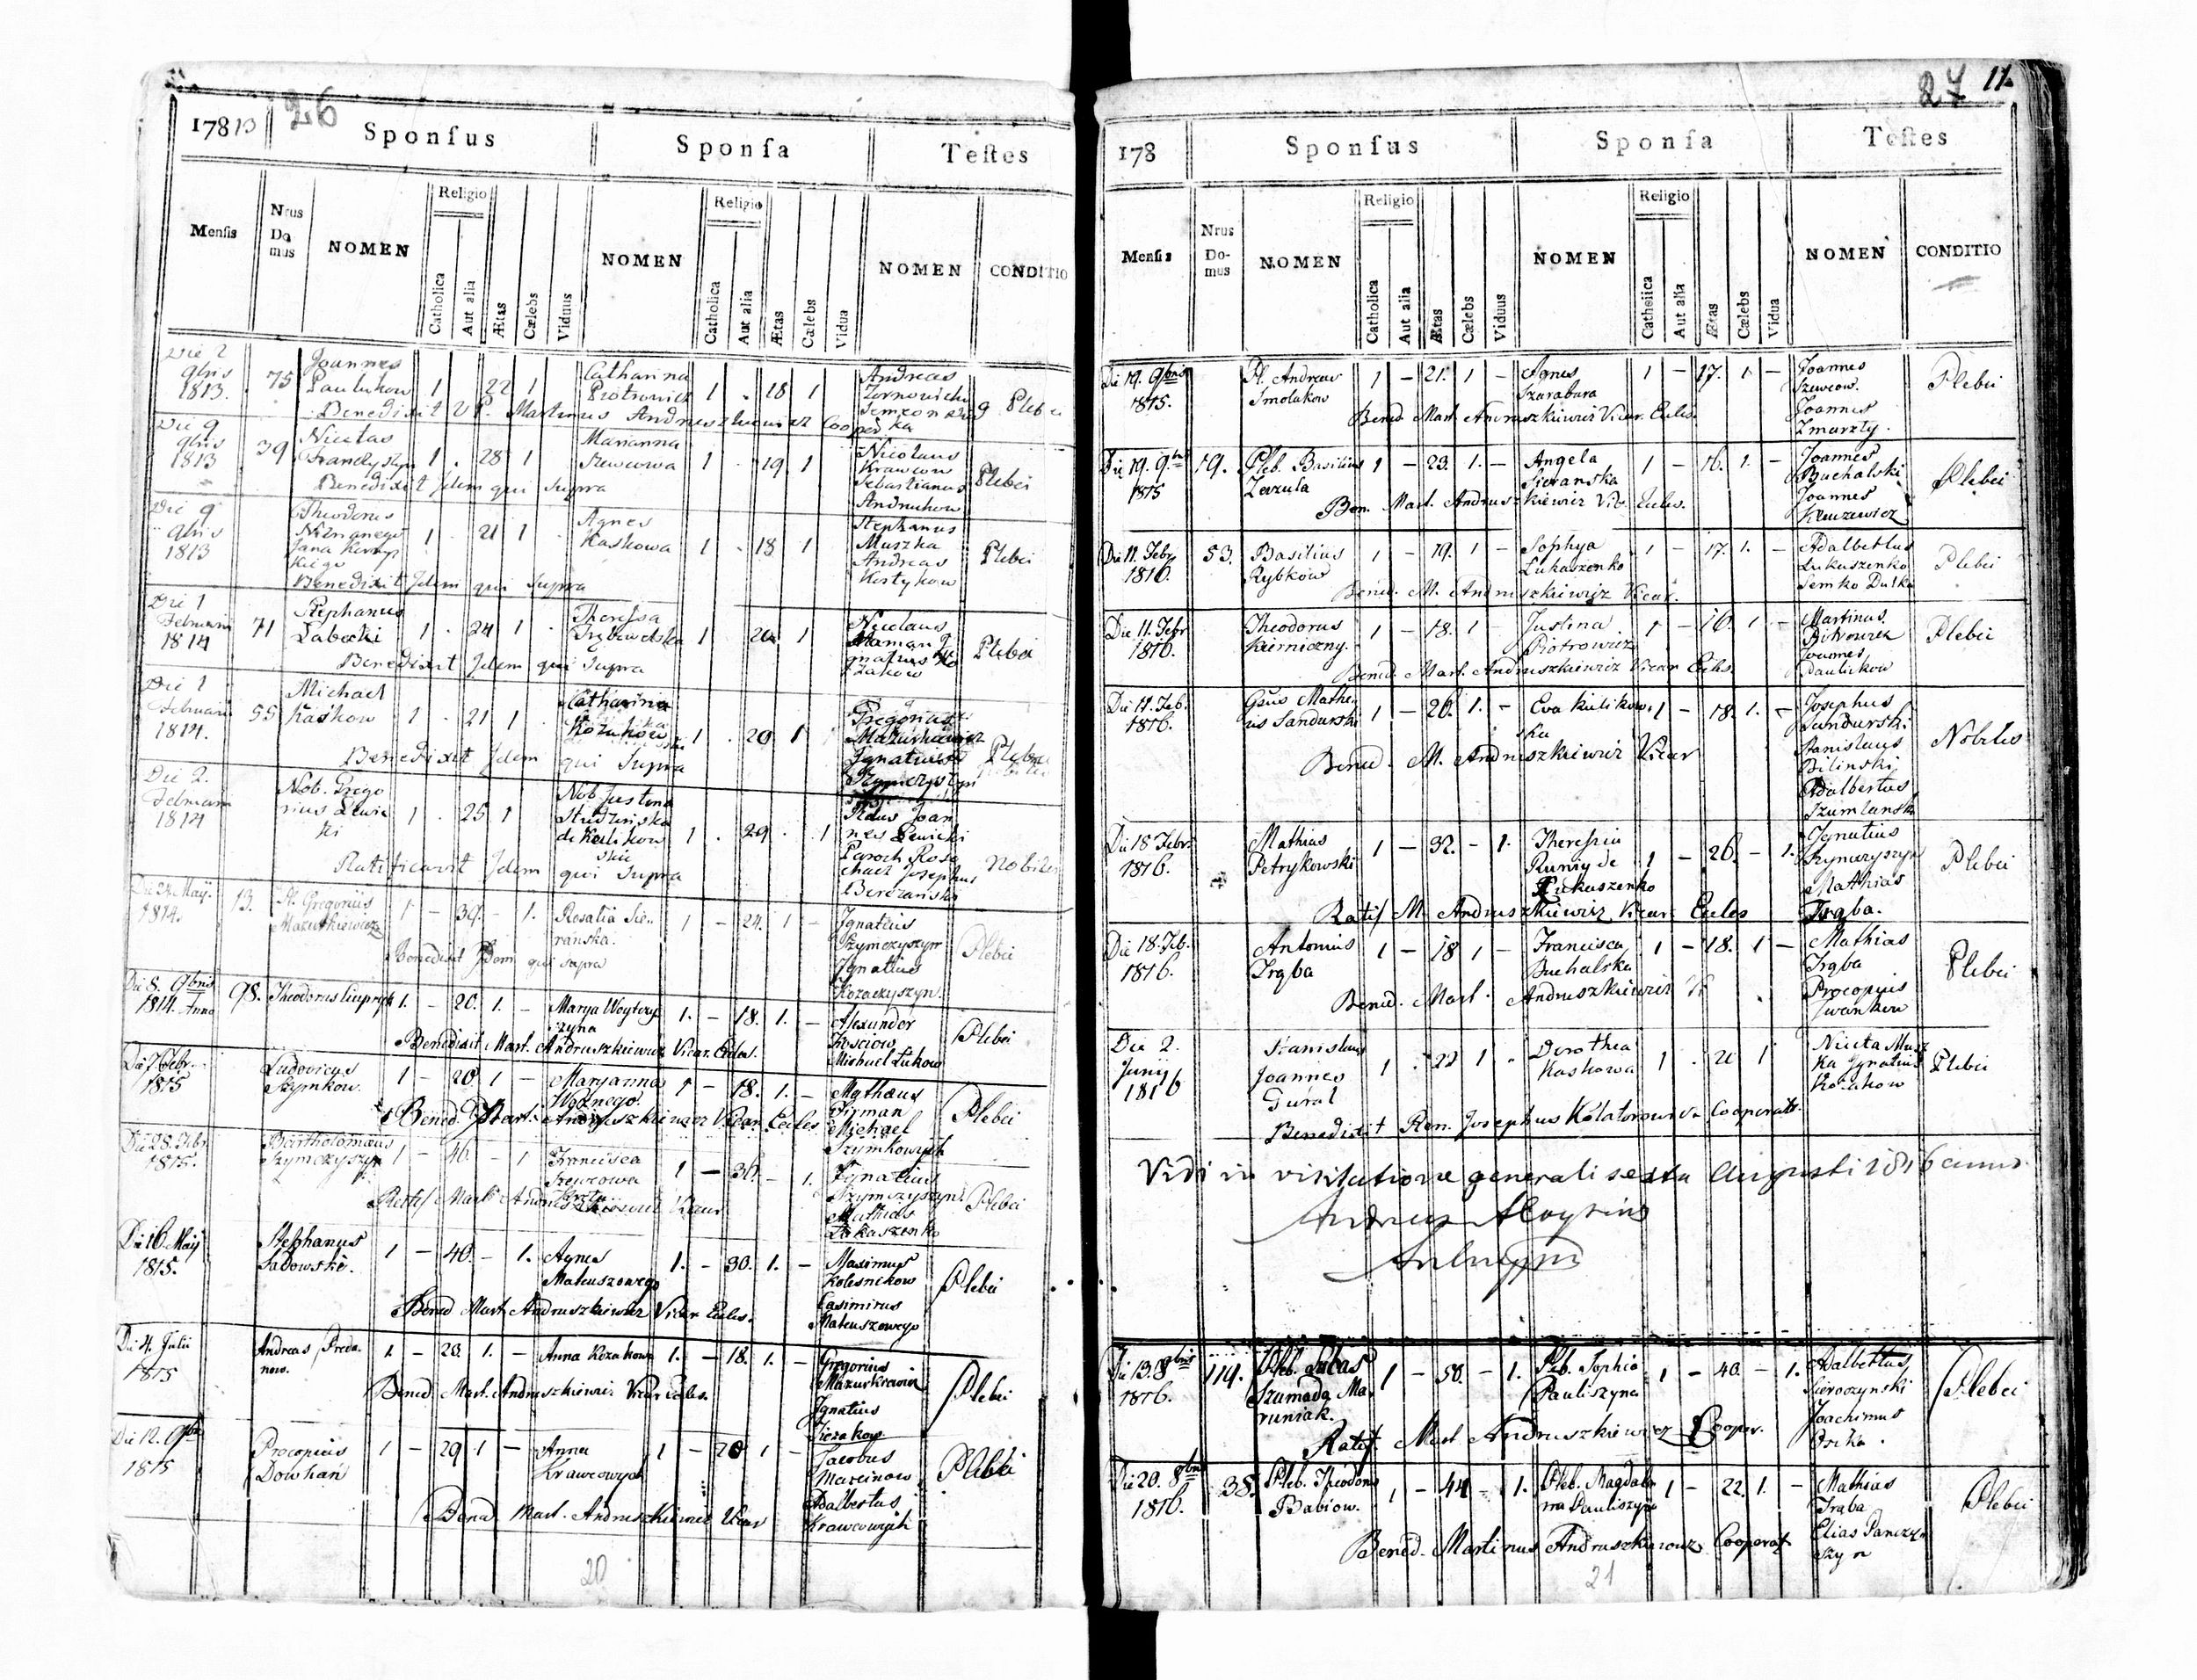 26
178 13 Sponſus Sponſa Teſtes
Menſis Nrus Domus NOMEN Religio Catholica Aut alia Ætas Cælebs Viduus NOMEN Religio Catholica Aut alia Ætas Cælebs Vidua NOMEN CONDITIO
Die 2 9bris 1813. 75 Joannes Paulukow 1 22 1 Catharina Piotrowicz 1 18 1 Andreas Plebei
Benedixit Martinus Andruszkiewicz Cooper
Die 9 9bris 1813 39 Nicetas 1 28 1 Marianna Szewcowa 1 19 1 Nicolaus Krawcow Sebastianus Andruhow Plebei
Benedixit Idem qui Supra
Die 9 9bris 1813 Theodorus 1 21 1 Agnes Kaskowa 1 18 1 Stephanus Muszka Andreas Kostykow Plebei
Benedixit Idem qui Supra
Die 1 Februarii 1814 71 Stephanus Labecki 1 24 1 Theressa 1 20 1 Nicolaus Plebei
Benedixit Idem qui Supra
Die 1 Februarii 1814. 55 Michael Kaskow 1 21 1 Catharina 1 20 1 Gregorius Mazurkiewicz Ignatius Szymczyszyn Plebei
Benedixit Idem qui Supra
Die 2. Februarii 1814 Nob. Gregorius Lewicki 1 25 1 Nob Justina Studzinska de Kulikowskie 1 29 1 Joannes Lewicki Paroch Josephus Berezanski nobiles
Ratificavit Idem qui Supra
Die 24 Maji. 1814. 13. Pl. Gregorius Mazurkiewicz 1 – 39. – 1. Rosalia Sieranska. 1 – 24. 1 – Ignatius Szymczyszyn Ignatius Kozaczyszyn. Plebei
Benedixit Idem qui supra
Die 8. 9bris 1814. Anno 98. Theodorus 1. – 20. 1. – Marya 1. – 18. 1. – Alexander Michael Lukow Plebei
Benedixit Mart. Andruszkiewicz Vicar. Eccles.
Die 7 Febr. 1815 Ludovicus Szymkow. 1 – 20 1 – Maryanna Woznego. 1 – 18. 1. – Mathæus Michael Szymkowych Plebei
Bened. Mart. Andruszkiewicz Vicar. Eccles.
Die 28. Febr. 1815. Bartholomæus Szymczyszyn 1 – 46. – 1 Francisca Szewcowa 1 – 36. – 1. Ignatius Szymczyszyn. Mathias Lukaszenko Plebei
Ratif Mart Andruszkiewicz Vicar
Die 16 Maij 1815. Stephanus Sadowski. 1 – 40. – 1. Agnes Mateuszowego 1. – 30. 1. – Maximus Kolesnikow Casimirus Mateuszowego Plebei
Bened Mart. Andruszkiewicz Vicar Eccles.
Die 4. Julii 1815 Andreas 1. – 23. 1. – Anna Kozakowa 1. – 18. 1. – Gregorius Mazurkiewicz Ignatius Plebei
Bened Mart. Andruszkiewicz Vicar Eccles.
Die 12. 9bris 1815 Procopius Dowhań 1 – 29 1 – Anna Krawcowych 1 – 20 1 – Jacobus Marcinow Adalbertus Krawcowych Plebei
Bened Mart. Andruszkiewicz Vicar
20
27 11
178 Sponſus Sponſa Teſtes
Menſis Nrus Domus NOMEN Religio Catholica Aut alia Ætas Cælebs Viduus NOMEN Religio Catholica Aut alia Ætas Cælebs Vidua NOMEN CONDITIO
Die 19. 9bris 1815. Pl. Andreas Smolakow 1 – 21. 1 – Agnes Szarabura 1 – 17. 1 – Joannes Szewcow. Joannes Zmarzły. Plebei
Bened. Mart. Andruszkiewicz Vicar. Eccles.
Die 19. 9bris 1815 19. Pleb. Basilius Zazula 1 – 23. 1. – Angela Sieranska 1 – 16. 1. – Joannes Buchalski Joannes Plebei
Ben. Mart. Andruszkiewicz Vic. Eccles.
Die 11. Febr. 1816. 53. Basilius Rybków 1 – 19. 1 – Sophya Lukaszenko 1 – 17. 1. – Adalbertus Lukuszenko Semko Dutka Plebei
Bened. M. Andruszkiewicz Vicar.
Die 11. Febr 1816. Theodorus Kierniczny. 1 – 18. 1 – Justina Piotrowicz 1 – 16. 1. – Martinus Joannes Paulikow Plebei
Bened. Mart. Andruszkiewicz Vicar Eccles.
Die 11. Feb. 1816. Gsus Matheus Sandurski 1 – 26. 1. – Eva Kulikowska 1 – 18. 1. – Josephus Sandurski Stanislaus Bilinski Adalbertus Szumlanski Nobiles
Bened. M. Andruszkiewicz Vicar
Die 18 Febr. 1816. Mathias Petrykowski 1 – 32. – 1. Theressia Rumij de Lukuszenko 1 – 26. – 1. Ignatius Szymczyszyn Mathias Trąba. Plebei
Ratif M. Andruszkiewicz Vicar Eccles
Die 18. Feb. 1816. Antonius Trąba 1 – 18 1 – Francisca Buchalska 1 – 18. 1 – Mathias Trąba Procopius Iwankow Plebei
Bened. Mart. Andruszkiewicz
Die 2. Junij 1816 Stanislaus Joannes Gurał 1 . 22 1 Dorothea Kaskowa 1 . 20 1 Niceta Muszka Ignatius Kozakow Plebei
Benedixit Ren. Josephus Cooperato
Vidi in visitatione generali sexta Augusti 1816 anno.
Andreas Aloysius
Die 13. 8bris 1816. 114. Pleb. Lucas Szumada Maruniak. 1 – 50. – 1. Pleb. Sophia Pauliszyna 1 – 40. – 1. Adalbertus Sieroczynski Joachimus Osika. Plebei
Ratif. Mart Andruszkiewicz Cooper.
Die 20. 8bris 1816. 38. Pleb. Theodorus Babiow. 1 – 44 – 1. Pleb. Magdalena Pauliszyn 1 – 22. 1. – Mathias Traba Elias Panczyszyn Plebei
Bened. Martinus Andruszkiewicz Cooperat
21